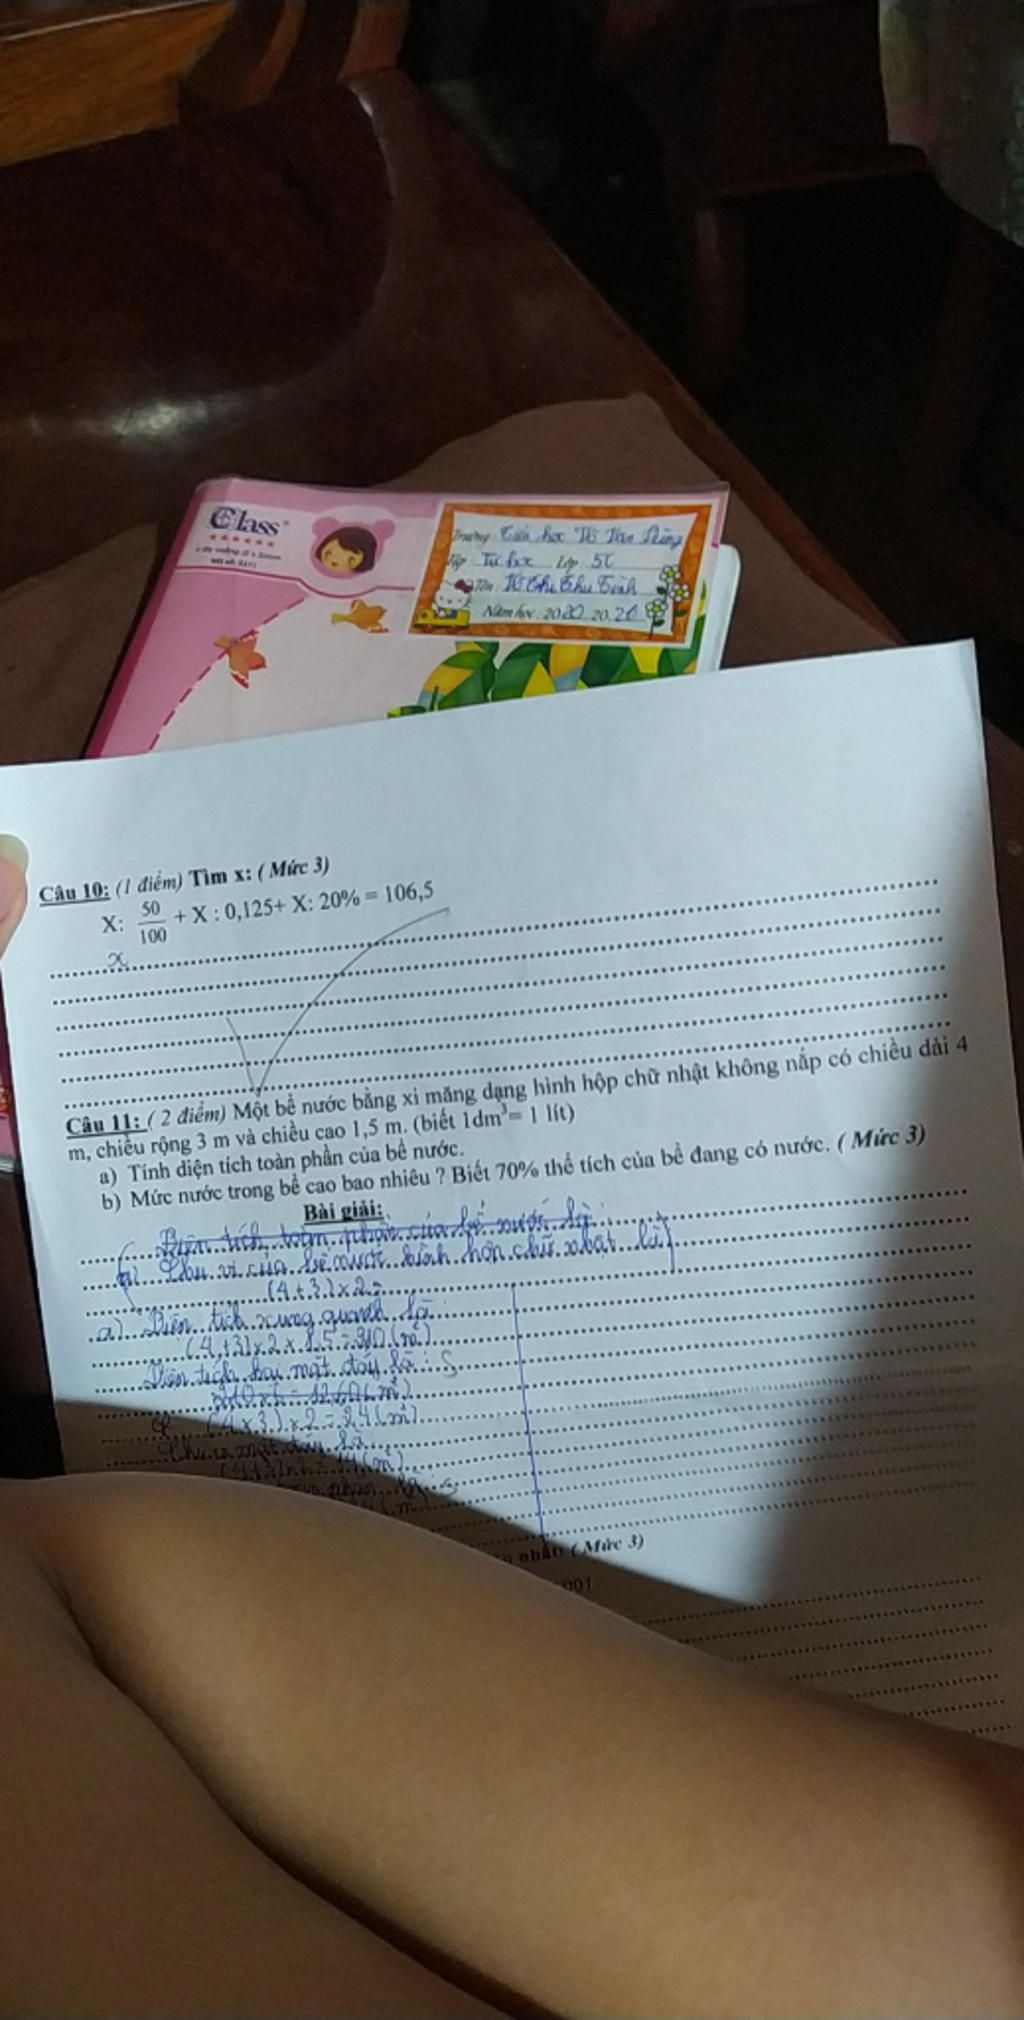 Class
Trường Tiểu học Võ Văn Dũng
Tập: Tự học Lớp: 5C
Tên: Võ Thị Thu
Năm học: 2020 20
Câu 10: (1 điểm) Tìm x: ( Mức 3)
X: 50/100 + X : 0,125+ X: 20% = 106,5
x
Câu 11: ( 2 điểm) Một bể nước bằng xi măng dạng hình hộp chữ nhật không nắp có chiều dài 4
m, chiều rộng 3 m và chiều cao 1,5 m. (biết 1dm³= 1 lít)
a) Tính diện tích toàn phần của bể nước.
b) Mức nước trong bể cao bao nhiêu ? Biết 70% thể tích của bể đang có nước. ( Mức 3)
Bài giải:
Diện tích toàn phần của bể nước là:
Chu vi của bể nước hình hộp chữ nhật là:
(4+3)×2=
a) Diện tích xung quanh là:
(4+3)×2×1,5=210(m²)
Diện tích hai mặt đáy là: S
(4×3)×2=24(m²)
Chu vi mặt đáy là
(4+3)×2=14(m)
phần là S
nhất: (Mức 3)
001